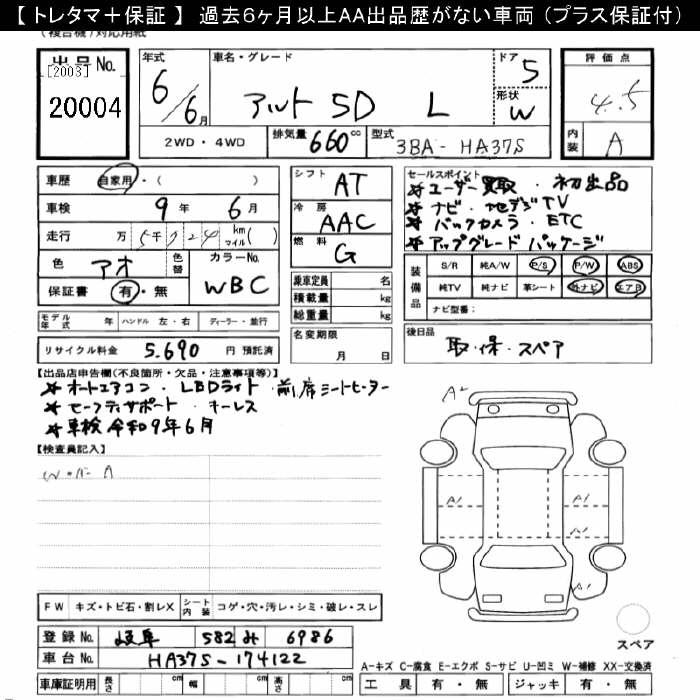 【 トレタマ＋保証 】 過去6ヶ月以上AA出品歴がない車両 (プラス保証付)
(複合機)対応用紙
出品No.
[2003]
20004
年式
6/6月
車名・グレード
アルト 5D L
ドア
5
形状
W
2WD・4WD
排気量 660cc
型式 3BA-HA37S
評価点
4.5
内装 A
車歴 自家用・( )
車検 9年 6月
走行 万 5千724 km マイル( )
色 アオ 色替
カラーNo. WBC
保証書 有・無
シフト AT
冷房 AAC
燃料 G
乗車定員 名
積載量 kg
総重量 kg
名変期限
月 日
セールスポイント
★ユーザー買取・初出品
★ナビ・地デジTV
★バックカメラ・ETC
★アップグレードパッケージ
装備品
S/R 純A/W P/S P/W ABS
純TV 純ナビ 革シート 外ナビ エアB
ナビ型番:
モデル年式 年 ハンドル 左・右 ディーラー・並行
リサイクル料金 5.690 円 預託済
後日品
取・保・スペア
【出品店申告欄(不良箇所・欠品・注意事項等)】
★オートエアコン・LEDライト・前席シートヒーター
★セーフティサポート・キーレス
★車検令和9年6月
【検査員記入】
W・バー A
A2
A1
A1 A1
A1
FW キズ・トビ石・割レX シート内装 コゲ・穴・汚レ・シミ・破レ・スレ
登録No. 岐阜 582 み 6986
車台No. HA37S-174122
車庫証明用 長さ cm 幅 cm 高さ cm
スペア
A-キズ C-腐食 E-エクボ S-サビ U-凹ミ W-補修 XX-交換済
工具 有・無 ジャッキ 有・無